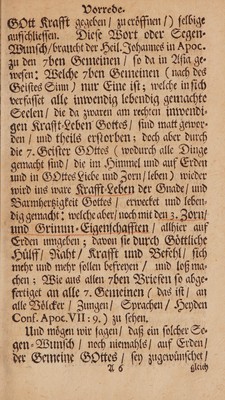 Vorrede.
GOtt Krafft gegeben / zu eröffnen /) selbige
auffschliessen. Diese Wort oder Segen-
Wunsch / braucht der Heil. Johannes in Apoc.
zu den 7ben Gemeinen / so da in Asia ge-
wesen: Welche 7ben Gemeinen (nach des
Geistes Sinn / nur Eine ist; welche in sich
verfasset alle inwendig lebendig gemachte
Seelen / die da zwaren am rechten inwendi-
gen Krafft-Leben GOttes / sind matt gewor-
den / und theils erstorben; doch aber durch
die 7. Geister GOttes (wodurch alle Dinge
gemacht sind / die im Himmel und auf Erden
und in GOttes Liebe und Zorn / leben) wieder
wird ins ware Krafft-Leben der Gnade / und
Barmhertzigkeit GOttes / erwecket und leben-
dig gemacht: welche aber / noch mit den 3. Zorn-
und Grimm-Eigenschafften / allhier auf
Erden umgeben; davon sie durch Göttliche
Hülff / Raht / Krafft und Befehl / sich
mehr und mehr sollen befreyen / und loß ma-
chen; Wie aus allen 7ben Briefen so abge-
fertiget an alle 7. Gemeinen (das ist / an
alle Völcker / Zungen / Sprachen / Heyden
Conf. Apoc. VII: 9.) zu sehen.
Und mögen wir sagen / daß ein solcher Se-
gen-Wunsch / noch niemahls / auf Erden /
der Gemeine GOttes / sey zugewünschet /
A 6 gleich